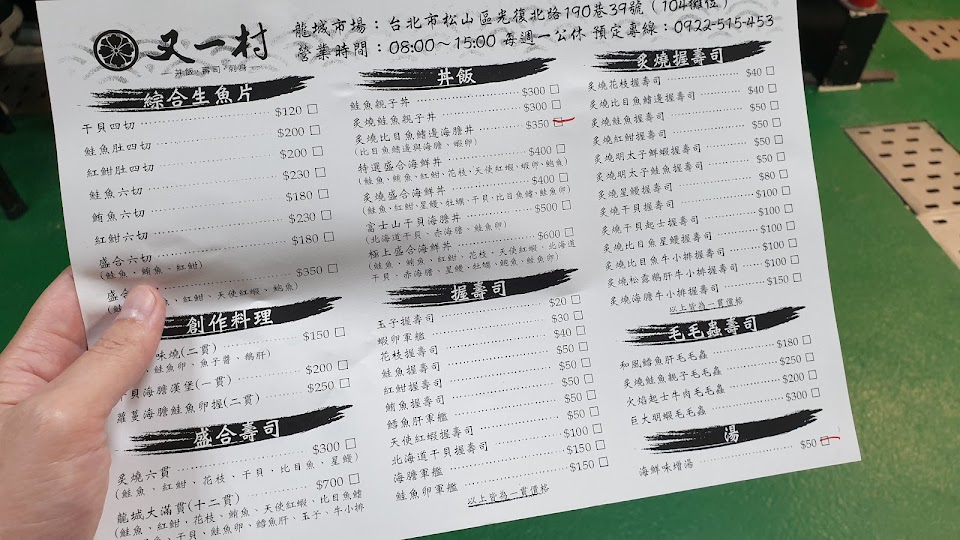 又一村
龍城市場：台北市松山區光復北路190巷39號（104攤位）
營業時間：08:00～15:00 每週一公休 預定專線：0922-515-453
綜合生魚片
干貝四切 $120 □
鮭魚肚四切 $200 □
紅魽肚四切 $200 □
鮭魚六切 $230 □
鮪魚六切 $180 □
紅魽六切 $230 □
盛合六切 $180 □
(鮭魚、鮪魚、紅魽)
盛合 $350 □
紅魽、天使紅蝦、鮑魚)
創作料理
味燒(二貫) $150 □
魚卵、魚子醬、鵝肝)
干貝海膽漢堡(一貫) $200 □
蘿蔓海膽鮭魚卵握(二貫) $250 □
盛合壽司
炙燒六貫 $300 □
(鮭魚、紅魽、花枝、干貝、比目魚、星鰻)
龍城大滿貫(十二貫) $700 □
(鮭魚、紅魽、花枝、鮪魚、天使紅蝦、比目魚鰭
干貝、鮭魚卵、鱈魚肝、玉子、牛小排
丼飯
鮭魚親子丼 $300 □
炙燒鮭魚親子丼 $300 □
炙燒比目魚鰭邊海膽丼 $350 □
(比目魚鰭邊與海膽、蝦卵)
特選盛合海鮮丼 $400 □
(鮭魚、鮪魚、紅魽、花枝、天使紅蝦、蝦卵、鮑魚)
炙燒盛合海鮮丼 $400 □
(鮭魚、紅魽、星鰻、牡蠣、干貝、比目魚鰭、鮭魚卵)
富士山干貝海膽丼 $500 □
(北海道干貝、赤海膽、鮭魚卵)
極上盛合海鮮丼 $600 □
(鮭魚、鮪魚、紅魽、花枝、天使紅蝦、北海道
干貝、赤海膽、星鰻、牡蠣、鮑魚、鮭魚卵)
握壽司
玉子握壽司 $20 □
蝦卵軍艦 $30 □
花枝握壽司 $40 □
鮭魚握壽司 $50 □
紅魽握壽司 $50 □
鮪魚握壽司 $50 □
鱈魚肝軍艦 $50 □
天使紅蝦握壽司 $50 □
北海道干貝握壽司 $100 □
海膽軍艦 $150 □
鮭魚卵軍艦 $150 □
以上皆為一貫價格
炙燒握壽司
炙燒花枝握壽司 $40 □
炙燒比目魚鰭邊握壽司 $40 □
炙燒鮭魚握壽司 $50 □
炙燒紅魽握壽司 $50 □
炙燒明太子鮮蝦握壽司 $50 □
炙燒明太子鮭魚握壽司 $50 □
炙燒星鰻握壽司 $80 □
炙燒干貝握壽司 $100 □
炙燒干貝起士握壽司 $100 □
炙燒比目魚星鰻握壽司 $100 □
炙燒比目魚牛小排握壽司 $100 □
炙燒松露鵝肝牛小排握壽司 $100 □
炙燒海膽牛小排握壽司 $150 □
以上皆為一貫價格
毛毛蟲壽司
和風鱈魚肝毛毛蟲 $180 □
炙燒鮭魚親子毛毛蟲 $250 □
火焰起士牛肉毛毛蟲 $200 □
巨大明蝦毛毛蟲 $300 □
湯
海鮮味增湯 $50 □